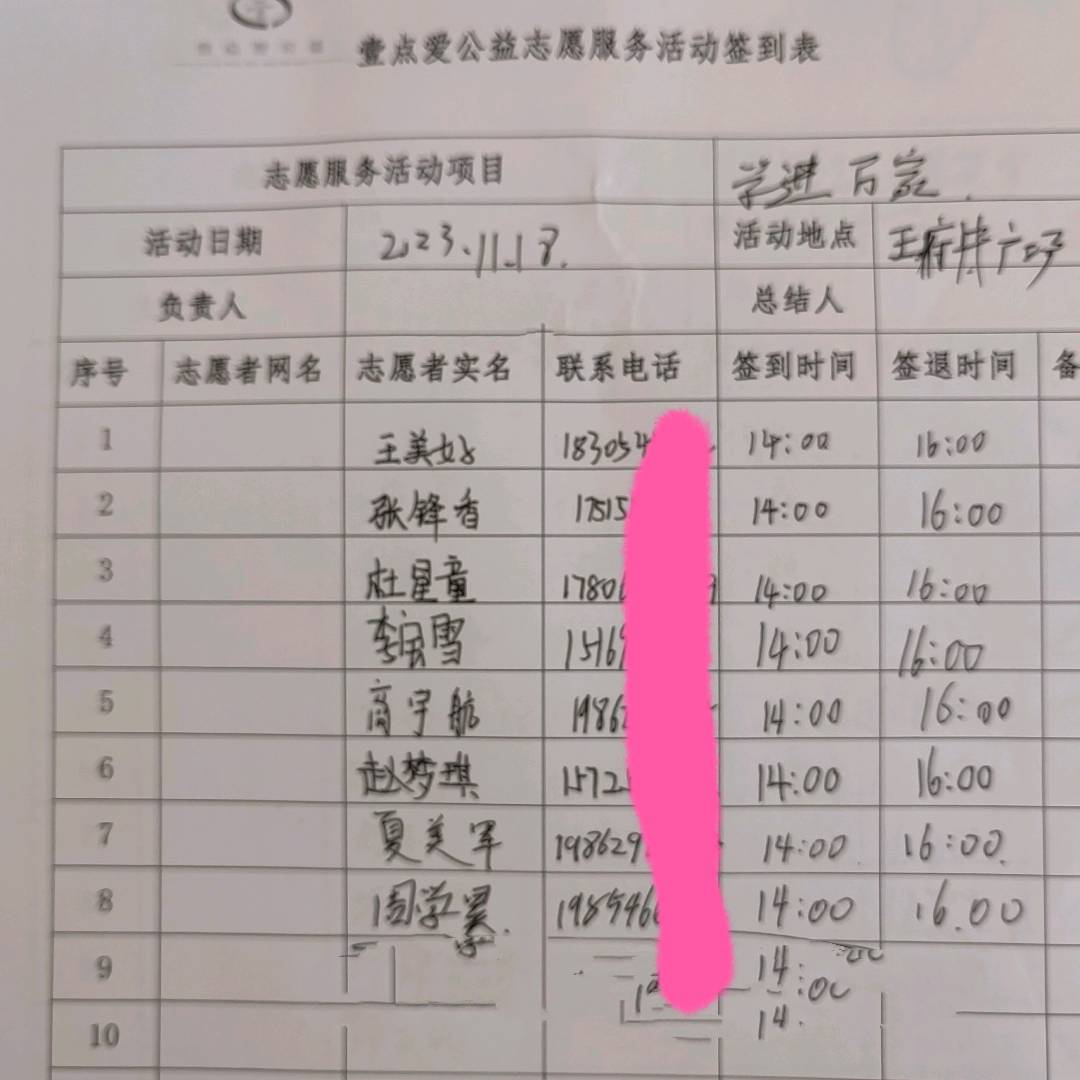 壹点爱公益志愿服务活动签到表
志愿服务活动项目 学进万家.
活动日期 2023.11.18. 活动地点 王府井广场
负责人 总结人
序号 志愿者网名 志愿者实名 联系电话 签到时间 签退时间 备
1 王美好 183054 14:00 16:00
2 张锋香 17515 14:00 16:00
3 杜星童 1780 14:00 16:00
4 李宝雪 1516 14:00 16:00
5 商宇航 1986 14:00 16:00
6 赵梦琪 1572 14:00 16:00
7 夏美军 198629 14:00 16:00.
8 周学 1985466 14:00 16.00
9 14:00
10 14.